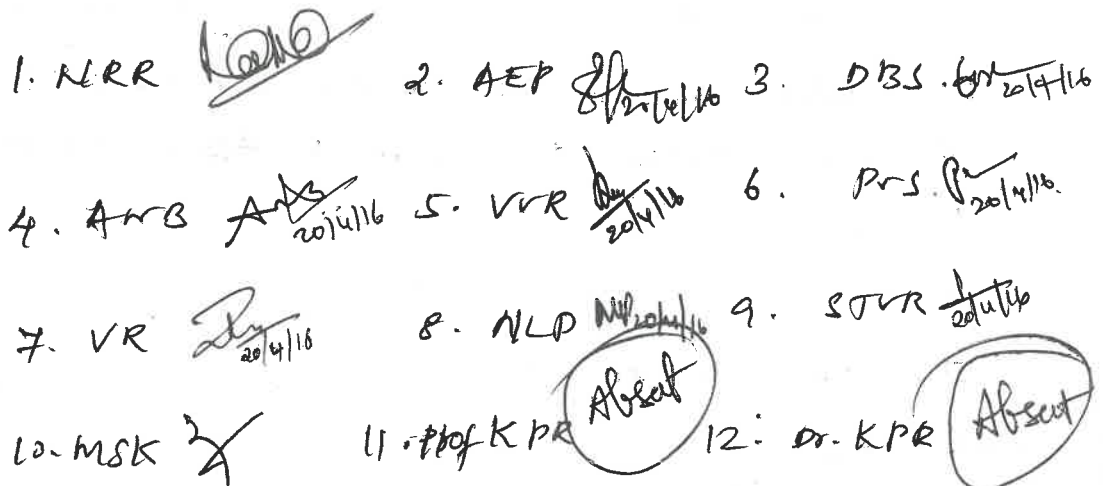 1. NRR 2. AEP 20/4/16 3. DBS. 20/4/16
4. ANB 20/4/16 5. VVR 20/4/16 6. PVS. 20/4/16.
7. VR 20/4/16 8. NLP 20/4/16 9. STVR 20/4/16
10. MSK 11. Prof KPR Absent 12. Dr. KPR Absent